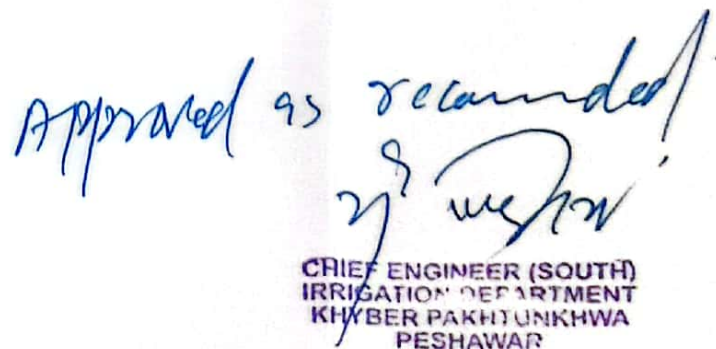 Approved as recommended
CHIEF ENGINEER (SOUTH)
IRRIGATION DEPARTMENT
KHYBER PAKHTUNKHWA
PESHAWAR